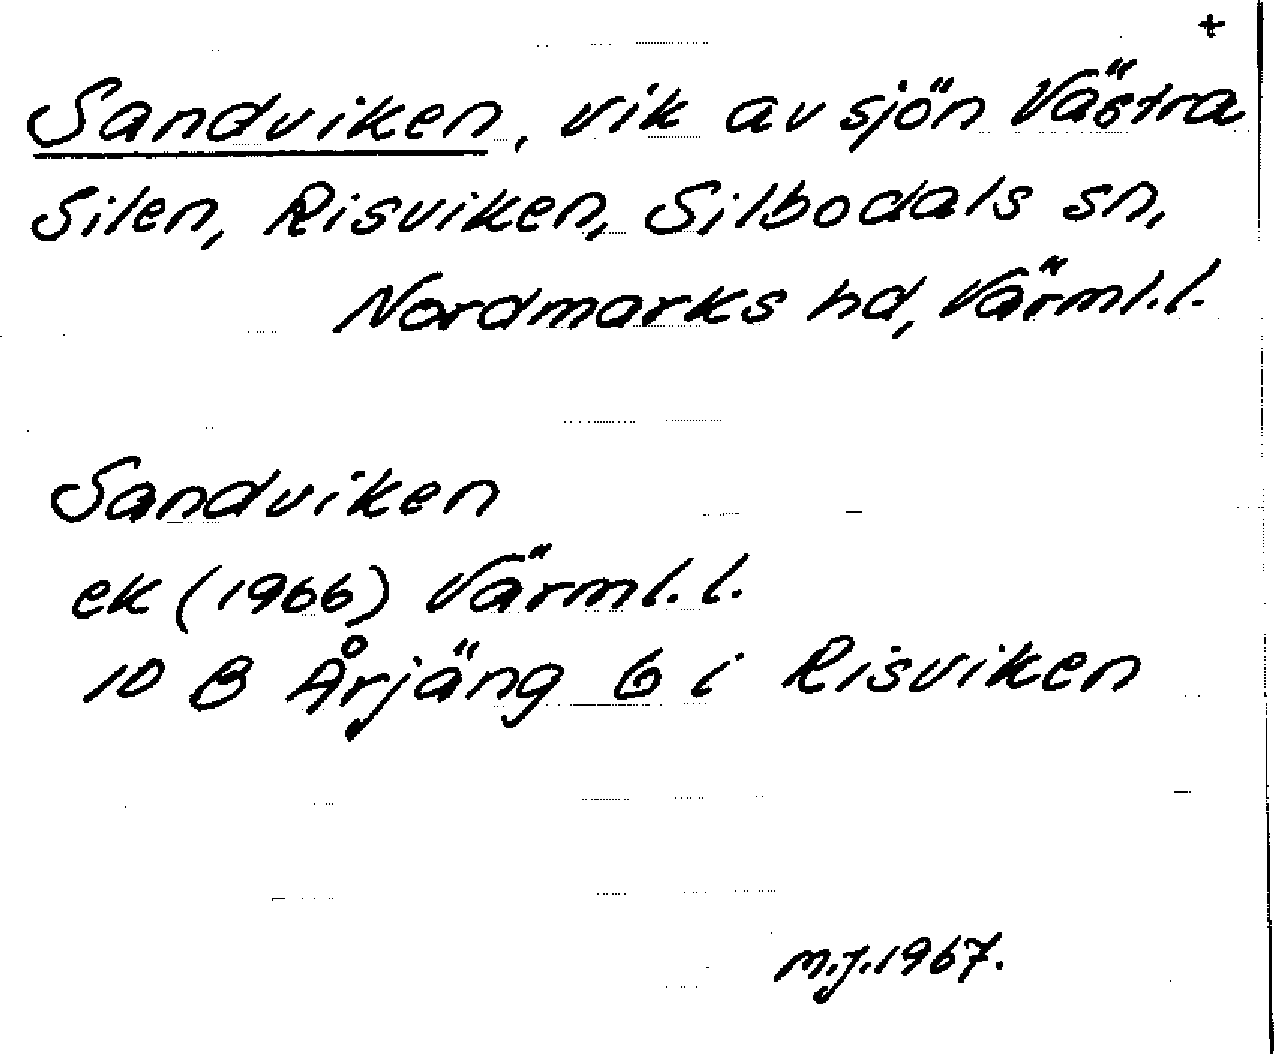 +
Sandviken, vik av sjön Västra
Silen, Risviken, Silbodals sn,
Nordmarks hd, Värml.l.
Sandviken
ek (1966) Värml.l.
10 B Årjäng 6 i Risviken
M.J.1967.